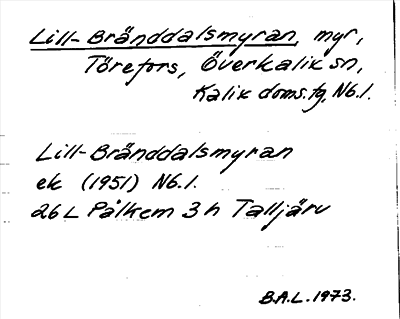 Lill-Bränddalsmyran, myr,
Törefors, Överkalix sn,
Kalix doms.fg, Nb.l.
Lill-Bränddalsmyran
ek (1951) Nb.l.
26 L Pålkem 3 h Talljärv
B.A.L. 1973.